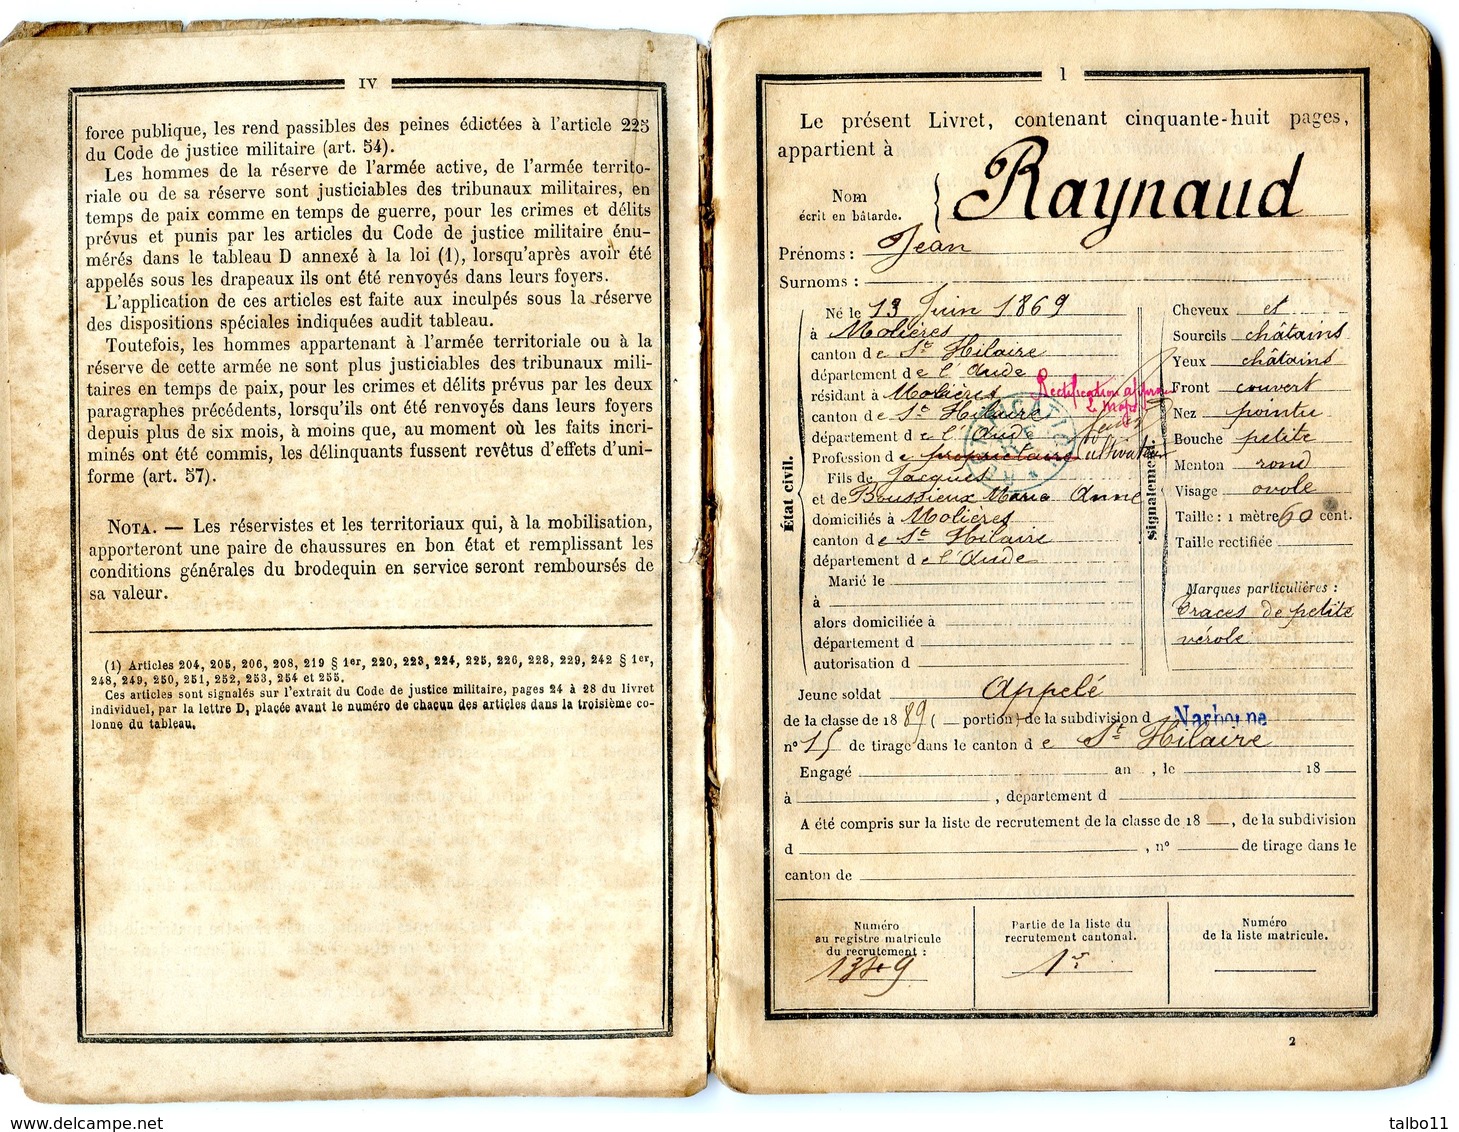 IV
force publique, les rend passibles des peines édictées à l'article 225
du Code de justice militaire (art. 54).
Les hommes de la réserve de l'armée active, de l'armée territo-
riale ou de sa réserve sont justiciables des tribunaux militaires, en
temps de paix comme en temps de guerre, pour les crimes et délits
prévus et punis par les articles du Code de justice militaire énu-
mérés dans le tableau D annexé à la loi (1), lorsqu'après avoir été
appelés sous les drapeaux ils ont été renvoyés dans leurs foyers.
L'application de ces articles est faite aux inculpés sous la réserve
des dispositions spéciales indiquées audit tableau.
Toutefois, les hommes appartenant à l'armée territoriale ou à la
réserve de cette armée ne sont plus justiciables des tribunaux mili-
taires en temps de paix, pour les crimes et délits prévus par les deux
paragraphes précédents, lorsqu'ils ont été renvoyés dans leurs foyers
depuis plus de six mois, à moins que, au moment où les faits incri-
minés ont été commis, les délinquants fussent revêtus d'effets d'uni-
forme (art. 57).
NOTA. — Les réservistes et les territoriaux qui, à la mobilisation,
apporteront une paire de chaussures en bon état et remplissant les
conditions générales du brodequin en service seront remboursés de
sa valeur.
(1) Articles 204, 205, 206, 208, 219 § 1er, 220, 223, 224, 225, 226, 228, 229, 242 § 1er,
248, 249, 250, 251, 252, 253, 254 et 255.
Ces articles sont signalés sur l'extrait du Code de justice militaire, pages 24 à 28 du livret
individuel, par la lettre D, placée avant le numéro de chacun des articles dans la troisième co-
lonne du tableau.
1
Le présent Livret, contenant cinquante-huit pages,
appartient à
Nom
écrit en bâtarde. Raynaud
Prénoms : Jean
Surnoms :
État civil.
Né le 13 Juin 1869
à Molières
canton de St Hilaire
département de l'Aude
résidant à Molières Rectification
canton de St Hilaire
département de l'Aude
Profession de propriétaire cultivateur
Fils de Jacques
et de Boussieux Marie Anne
domiciliés à Molières
canton de St Hilaire
département de l'Aude
Marié le
à
alors domiciliée à
département d
autorisation d
signalement.
Cheveux et
Sourcils châtains
Yeux châtains
Front couvert
Nez pointu
Bouche petite
Menton rond
Visage ovale
Taille : 1 mètre 60 cent.
Taille rectifiée
Marques particulières :
Traces de petite
vérole
Jeune soldat Appelé
de la classe de 1889 ( portion) de la subdivision d Narbonne
n° 15 de tirage dans le canton de St Hilaire
Engagé an , le 18
à , département d
A été compris sur la liste de recrutement de la classe de 18 , de la subdivision
d , n° de tirage dans le
canton de
Numéro
au registre matricule
du recrutement :
Partie de la liste du
recrutement cantonal.
1re
Numéro
de la liste matricule.
2
talbo11